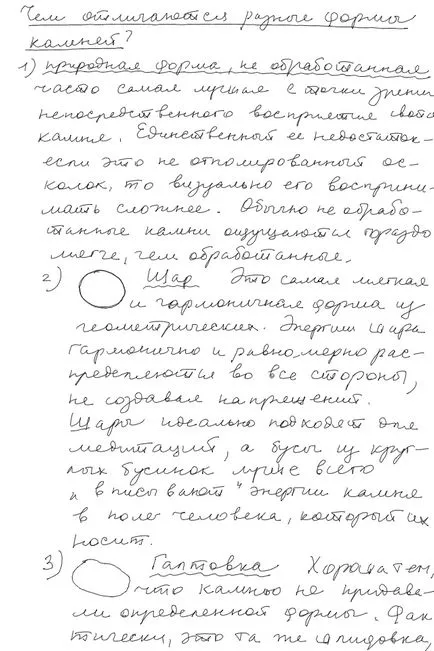 Чем отличаются разные формы
камней?
1) природная форма, не обработанная
часто самая лучшая с точки зрения
непосредственного восприятия свойств
камня. Единственный ее недостаток-
если это не отполированный ос-
колок, то визуально его восприни-
мать сложнее. Обычно не обрабо-
танные камни ощущаются гораздо
мягче, чем обработанные.
2) Шар Это самая мягкая
и гармоничная форма из
геометрических. Энергии шара
гармонично и равномерно рас-
пределяются во все стороны,
не создавая напряжений.
Шары идеально подходят для
медитаций, а бусы из круг-
лых бусинок лучше всего
"вписывают" энергии камня
в поле человека, который их
носит.
3) Галтовка Хороша тем,
что камню не придава-
ли определенной формы. Фак
тически, это та же шлифовка,